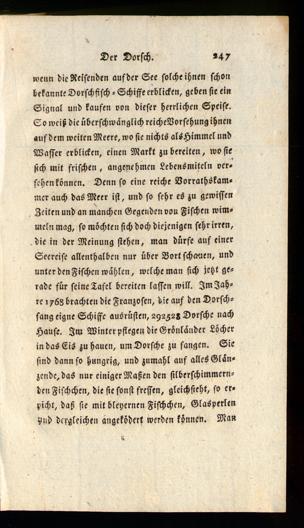 Der Dorsch. 247
wenn die Reisenden auf der See solche ihnen schon
bekannte Dorschfisch-Schiffe erblicken, geben sie ein
Signal und kaufen von dieser herrlichen Speise.
So weiß die überschwänglich reiche Vorsehung ihnen
auf dem weiten Meere, wo sie nichts als Himmel und
Wasser erblicken, einen Markt zu bereiten, wo sie
sich mit frischen, angenehmen Lebensmitteln ver-
sehen können. Denn so eine reiche Vorrathskam-
mer auch das Meer ist, und so sehr es zu gewissen
Zeiten und an manchen Gegenden von Fischen wim-
meln mag, so möchten sich doch diejenigen sehr irren,
die in der Meinung stehen, man dürfe auf einer
Seereise allenthalben nur über Bort schauen, und
unter den Fischen wählen, welche man sich jetzt ge-
rade für seine Tafel bereiten lassen will. Im Jah-
re 1768 brachten die Franzosen, die auf den Dorsch-
fang eigne Schiffe ausrüsten, 292528 Dorsche nach
Hause. Im Winter pflegen die Grönländer Löcher
in das Eis zu hauen, um Dorsche zu fangen. Sie
sind dann so hungrig, und zumahl auf alles Glän-
zende, das nur einiger Maßen den silberschimmern-
den Fischchen, die sie sonst fressen, gleichsieht, so er-
picht, daß sie mit bleyernen Fischchen, Glasperlen
und dergleichen angeködert werden können. Man